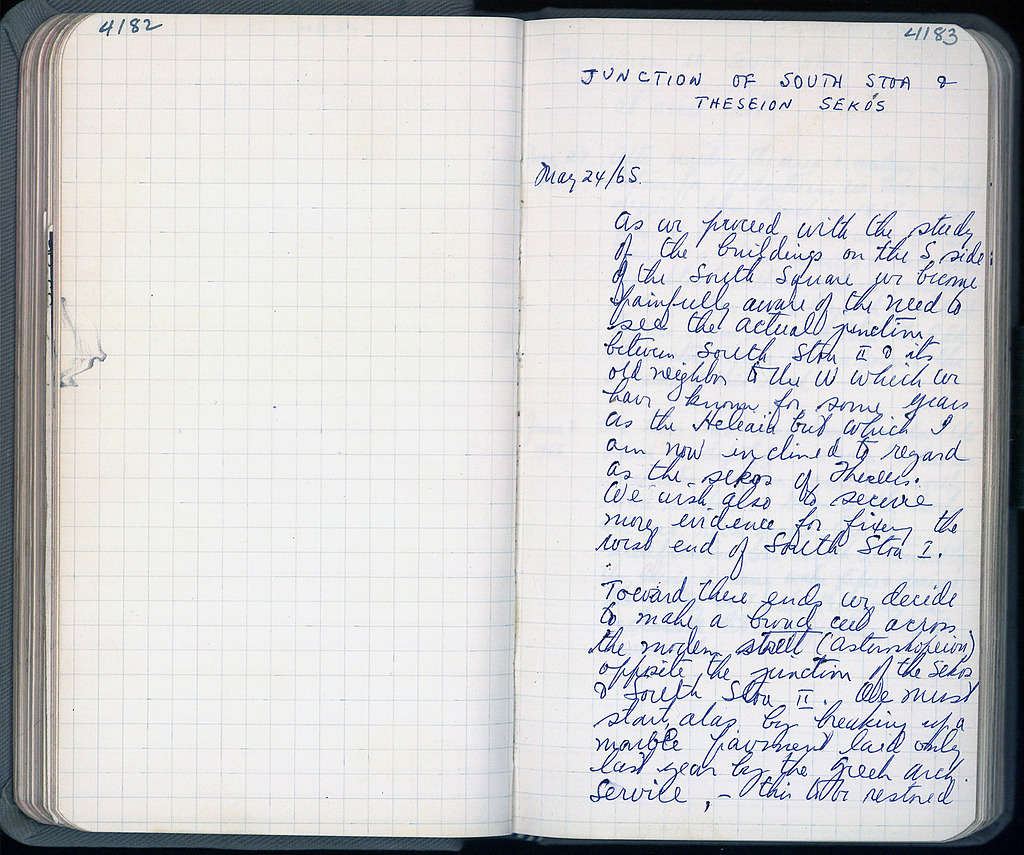 4182
4183
JUNCTION OF SOUTH STOA &
THESEION SEKÓS
May 24/65.
As we proceed with the study
of the buildings on the S side
of the South Square we become
painfully aware of the need to
see the actual junction
between South Stoa II & its
old neighbor to the W which we
have known for some years
as the Heliaia but which I
am now inclined to regard
as the sekos of Theseus.
We wish also to secure
more evidence for fixing the
west end of South Stoa I.
Toward these ends we decide
to make a broad cut across
the modern street (Asteroskopeion)
opposite the junction of the Sekos
& South Stoa II. We must
start, alas, by breaking up a
marble pavement laid only
last year by the Greek Arch.
Service, – this to be restored